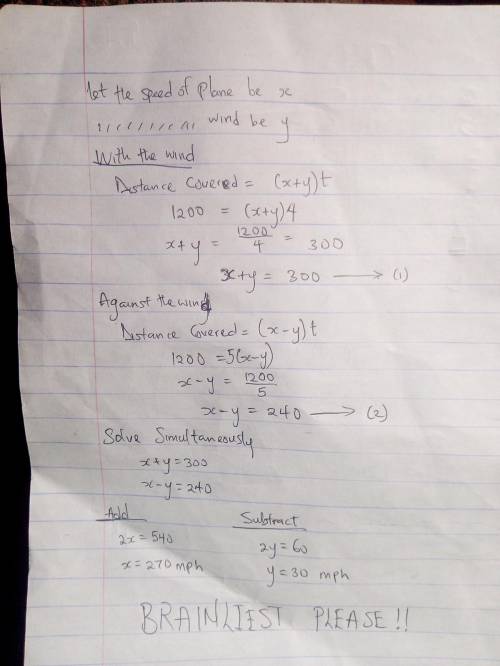 let the speed of plane be x
" " " " " " " " wind be y
With the wind
Distance Covered = (x+y)t
1200 = (x+y)4
x+y = 1200/4 = 300
x+y = 300 → (1)
Against the wind
Distance Covered = (x-y)t
1200 = 5(x-y)
x-y = 1200/5
x-y = 240 → (2)
Solve Simultaneously
x+y=300
x-y=240
Add
2x=540
x=270 mph
Subtract
2y=60
y=30 mph
BRAINLIEST PLEASE!!